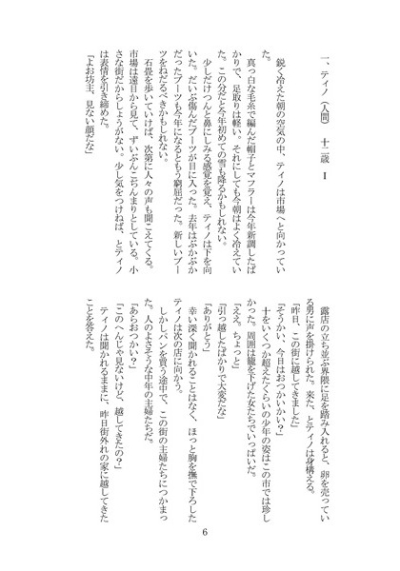 一、ティノ（人間）　十二歳　Ⅰ
　鋭く冷えた朝の空気の中、ティノは市場へと向かってい
た。
　真っ白な毛糸で編んだ帽子とマフラーは今年新調したば
かりで、足取りは軽い。それにしても今朝はよく冷えてい
た。この分だと今年初めての雪も降るかもしれない。
　少しだけつんと鼻にしみる感覚を覚え、ティノは下を向
いた。だいぶ傷んだブーツが目に入った。去年はぶかぶか
だったブーツも今年になるともう窮屈だった。新しいブー
ツをねだるべきかもしれない。
　石畳を歩いていけば、次第に人々の声も聞こえてくる。
市場は遠目から見て、ずいぶんこぢんまりとしている。小
さな街だからしょうがない。少し気をつけねば、とティノ
は表情を引き締めた。
「よお坊主。見ない顔だな」
　露店の立ち並ぶ界隈に足を踏み入れると、卵を売ってい
る男に声を掛けられた。来た、とティノは身構える。
「昨日、この街に越してきました」
「そうかい、今日はおつかいかい？」
　十をいくつか超えたくらいの少年の姿はこの市では珍し
かった。周囲は籠を下げた女たちでいっぱいだ。
「ええ、ちょっと」
「引っ越したばかりで大変だな」
「ありがとう」
　幸い深く聞かれることはなく、ほっと胸を撫で下ろした
ティノは次の店に向かう。
　しかしパンを買う途中で、この街の主婦たちにつかまっ
た。人のよさそうな中年の主婦たちだ。
「あらおつかい？」
「このへんじゃ見ないけど、越してきたの？」
　ティノは聞かれるままに、昨日街外れの家に越してきた
ことを答えた。
6